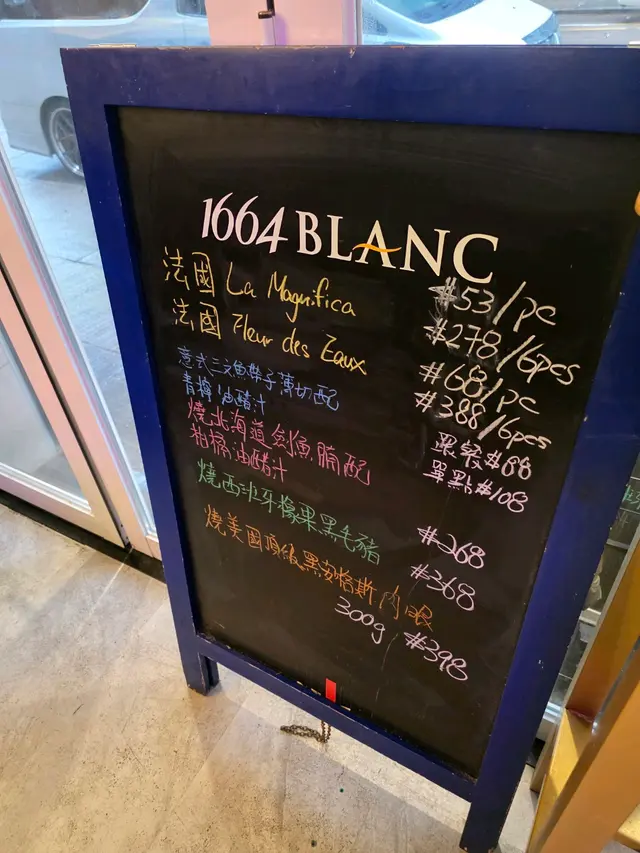 1664 BLANC
法國 La Magnifica #53/pc
#278/6pcs
法國 Fleur des Eaux #68/pc
#388/6pcs
意式三文魚帶子薄切配
青檸油醋汁 跟餐#88
單點#108
燒北海道劍魚腩配
柏橘油醋汁 #268
燒西班牙橡果黑毛豬 #368
燒美國頂級黑安格斯肉眼
300g #398